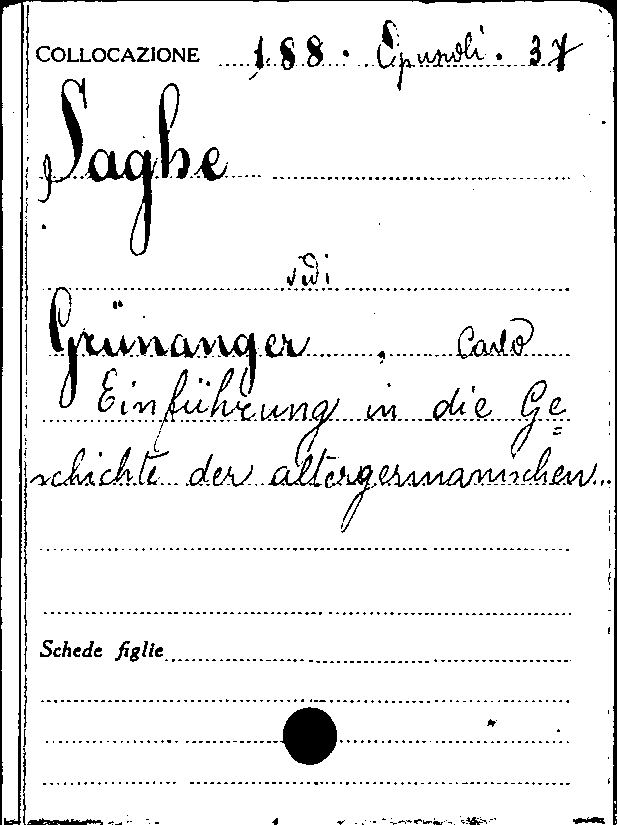 COLLOCAZIONE 188. Opuscoli. 37
Saghe
vedi
Grünanger, Carlo
Einführung in die Ge=
schichte der altergermanischen...
Schede figlie